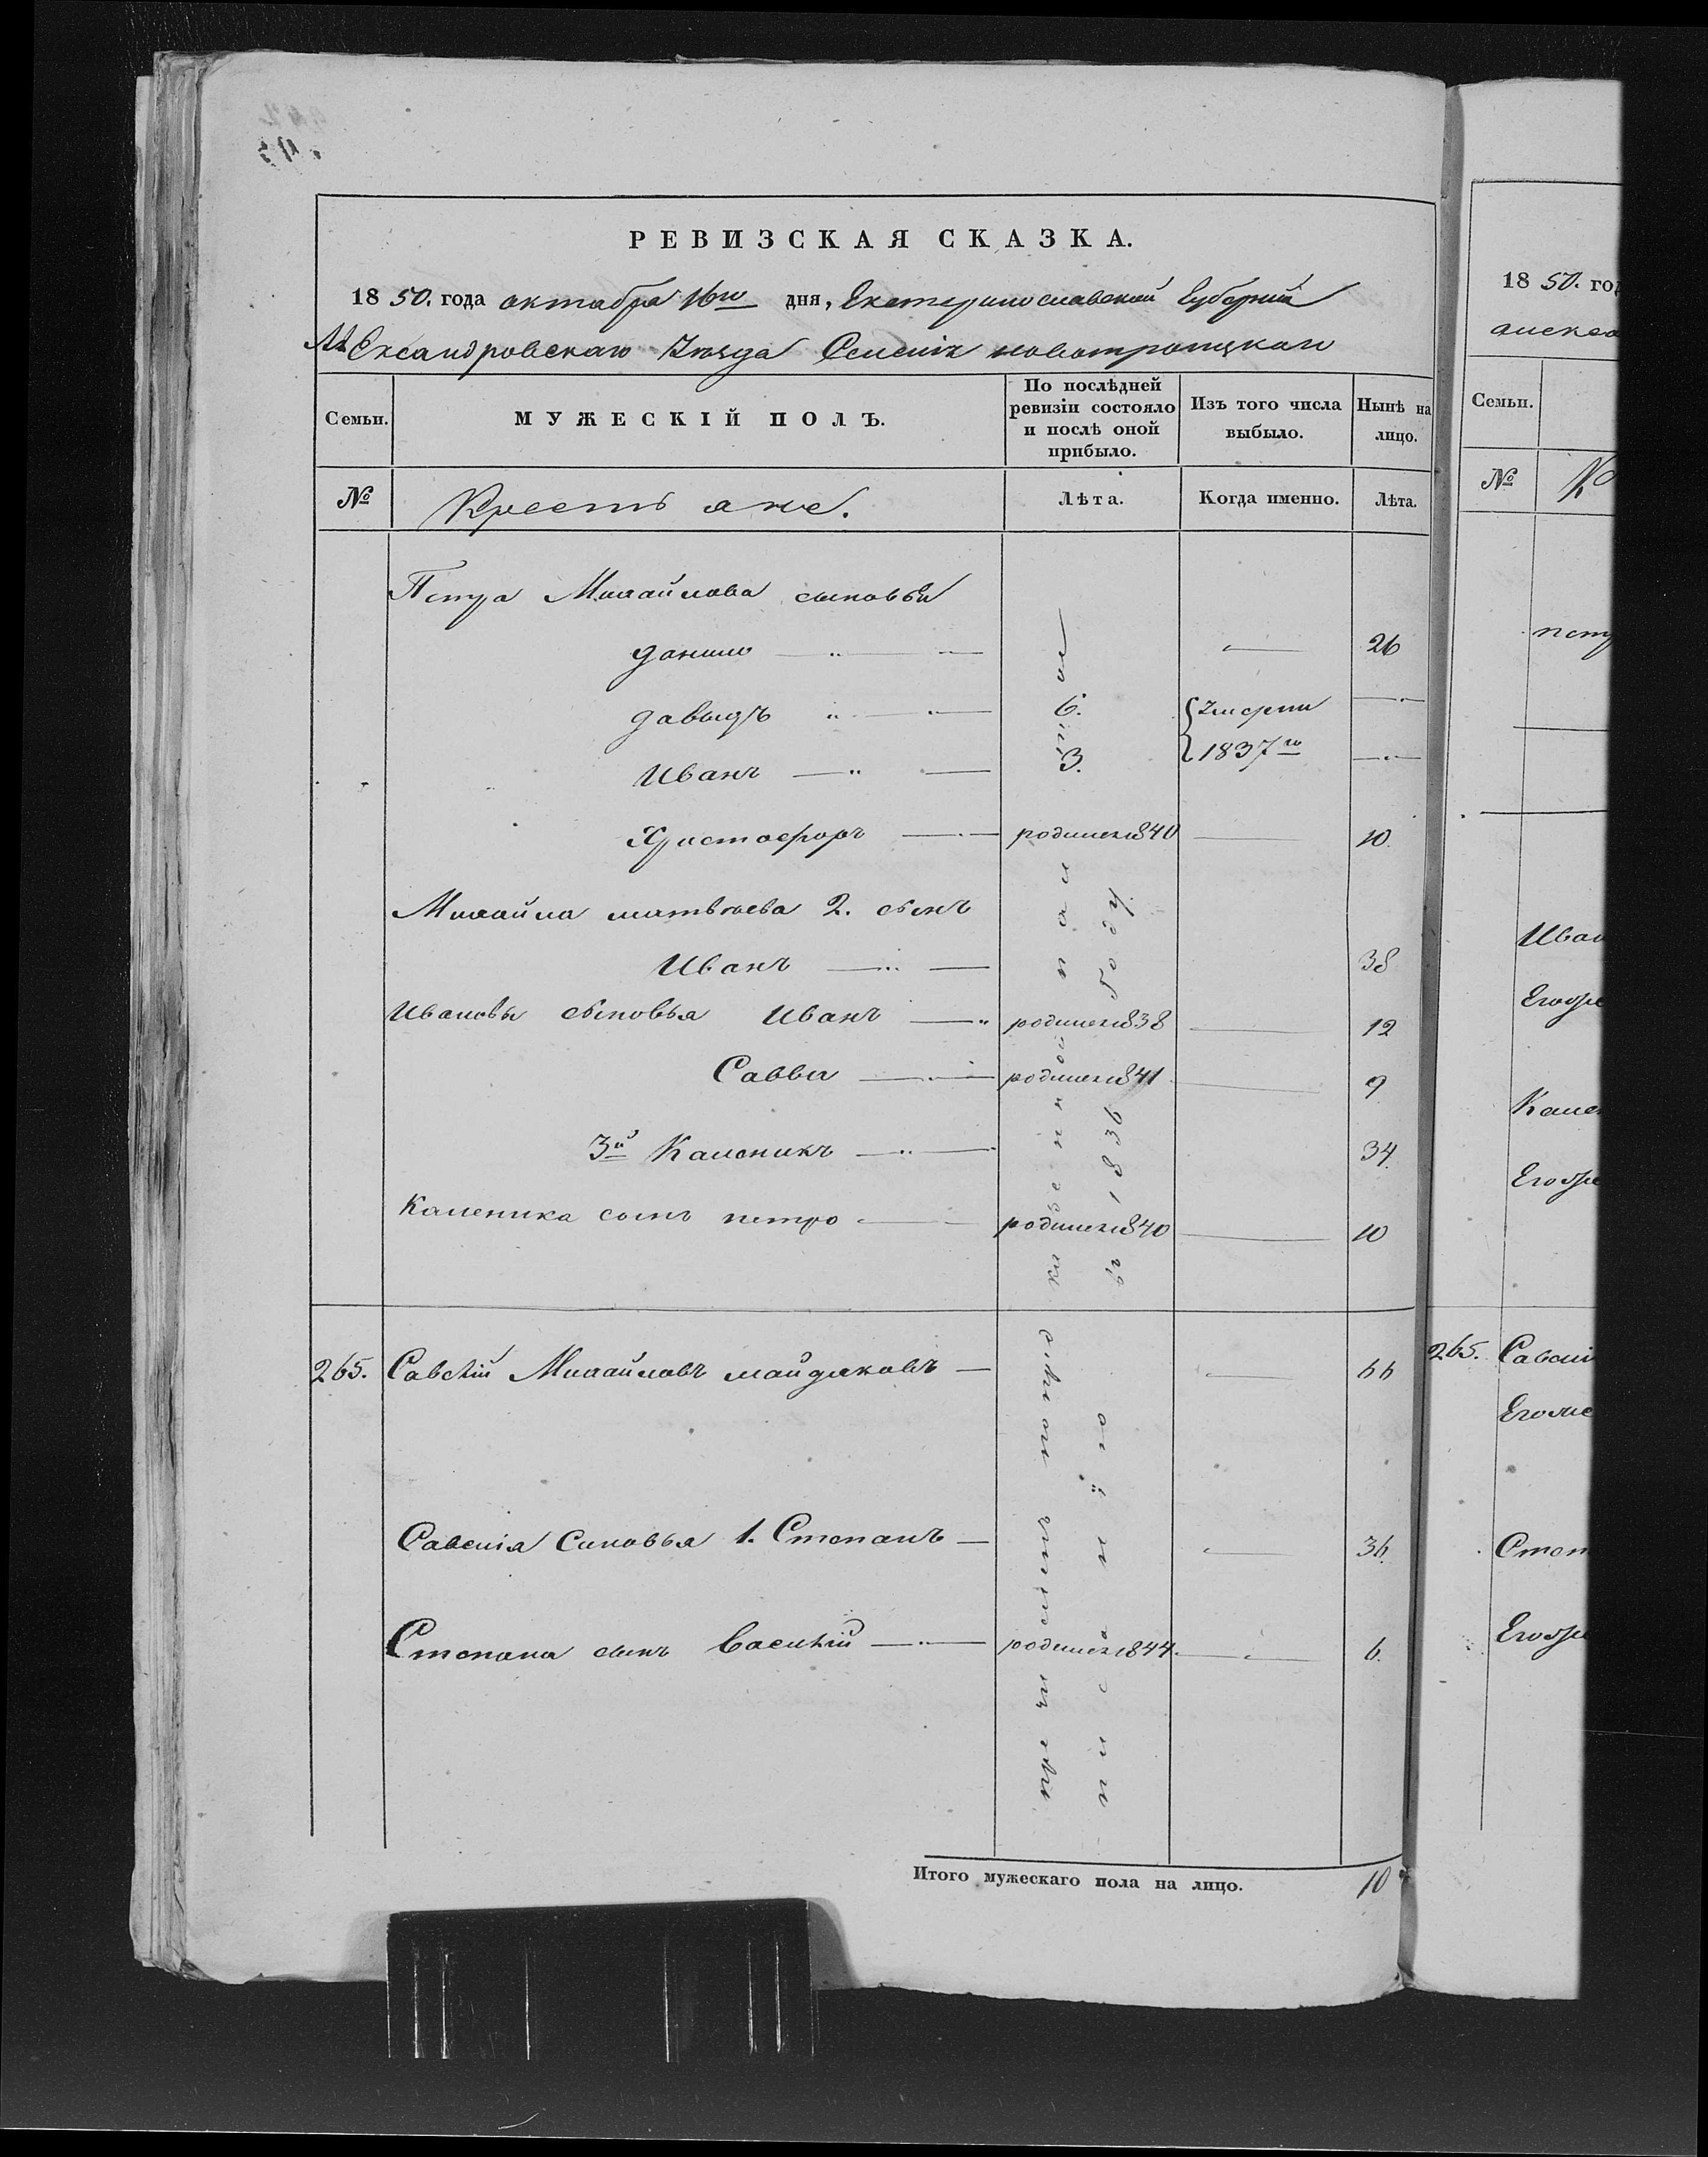 РЕВИЗСКАЯ СКАЗКА.
1850. года октября 16го дня, Екатеринославской Губернии
Александровскаго Уѣзда Селенія новотроицкаго
Семьи.
МУЖЕСКІЙ ПОЛЪ.
По послѣдней ревизіи состояло и послѣ оной прибыло.
Изъ того числа выбыло.
Нынѣ на лицо.
№
Крестьяне.
Лѣта.
Когда именно.
Лѣта.
Петра Михайлова сыновьи
данило 26
давыдъ 6. {Умерти
Иванъ 3. {1837го
Христофоръ родился 1840 10.
Михайла матвѣева 2. сынъ
Иванъ 38
Ивановы сыновья Иванъ родился 1838 12
Савва родился 1841 9
3й Каленикъ 34.
Каленика сынъ петро родился 1840 10
265. Савелій Михайловъ майдаковъ 66
Савелія Сыновья 1. Степанъ 36.
Степана сынъ Василій родился 1844. 6.
казенной палаты
въ 1836 году.
причисленъ по пред
писанію
Итого мужескаго пола на лицо. 10
1850. год
алекса
Семьи.
№
К
пет
Иван
Егоже
Кале
Егоже
265. Савелі
Егоже
Степ
Егоже